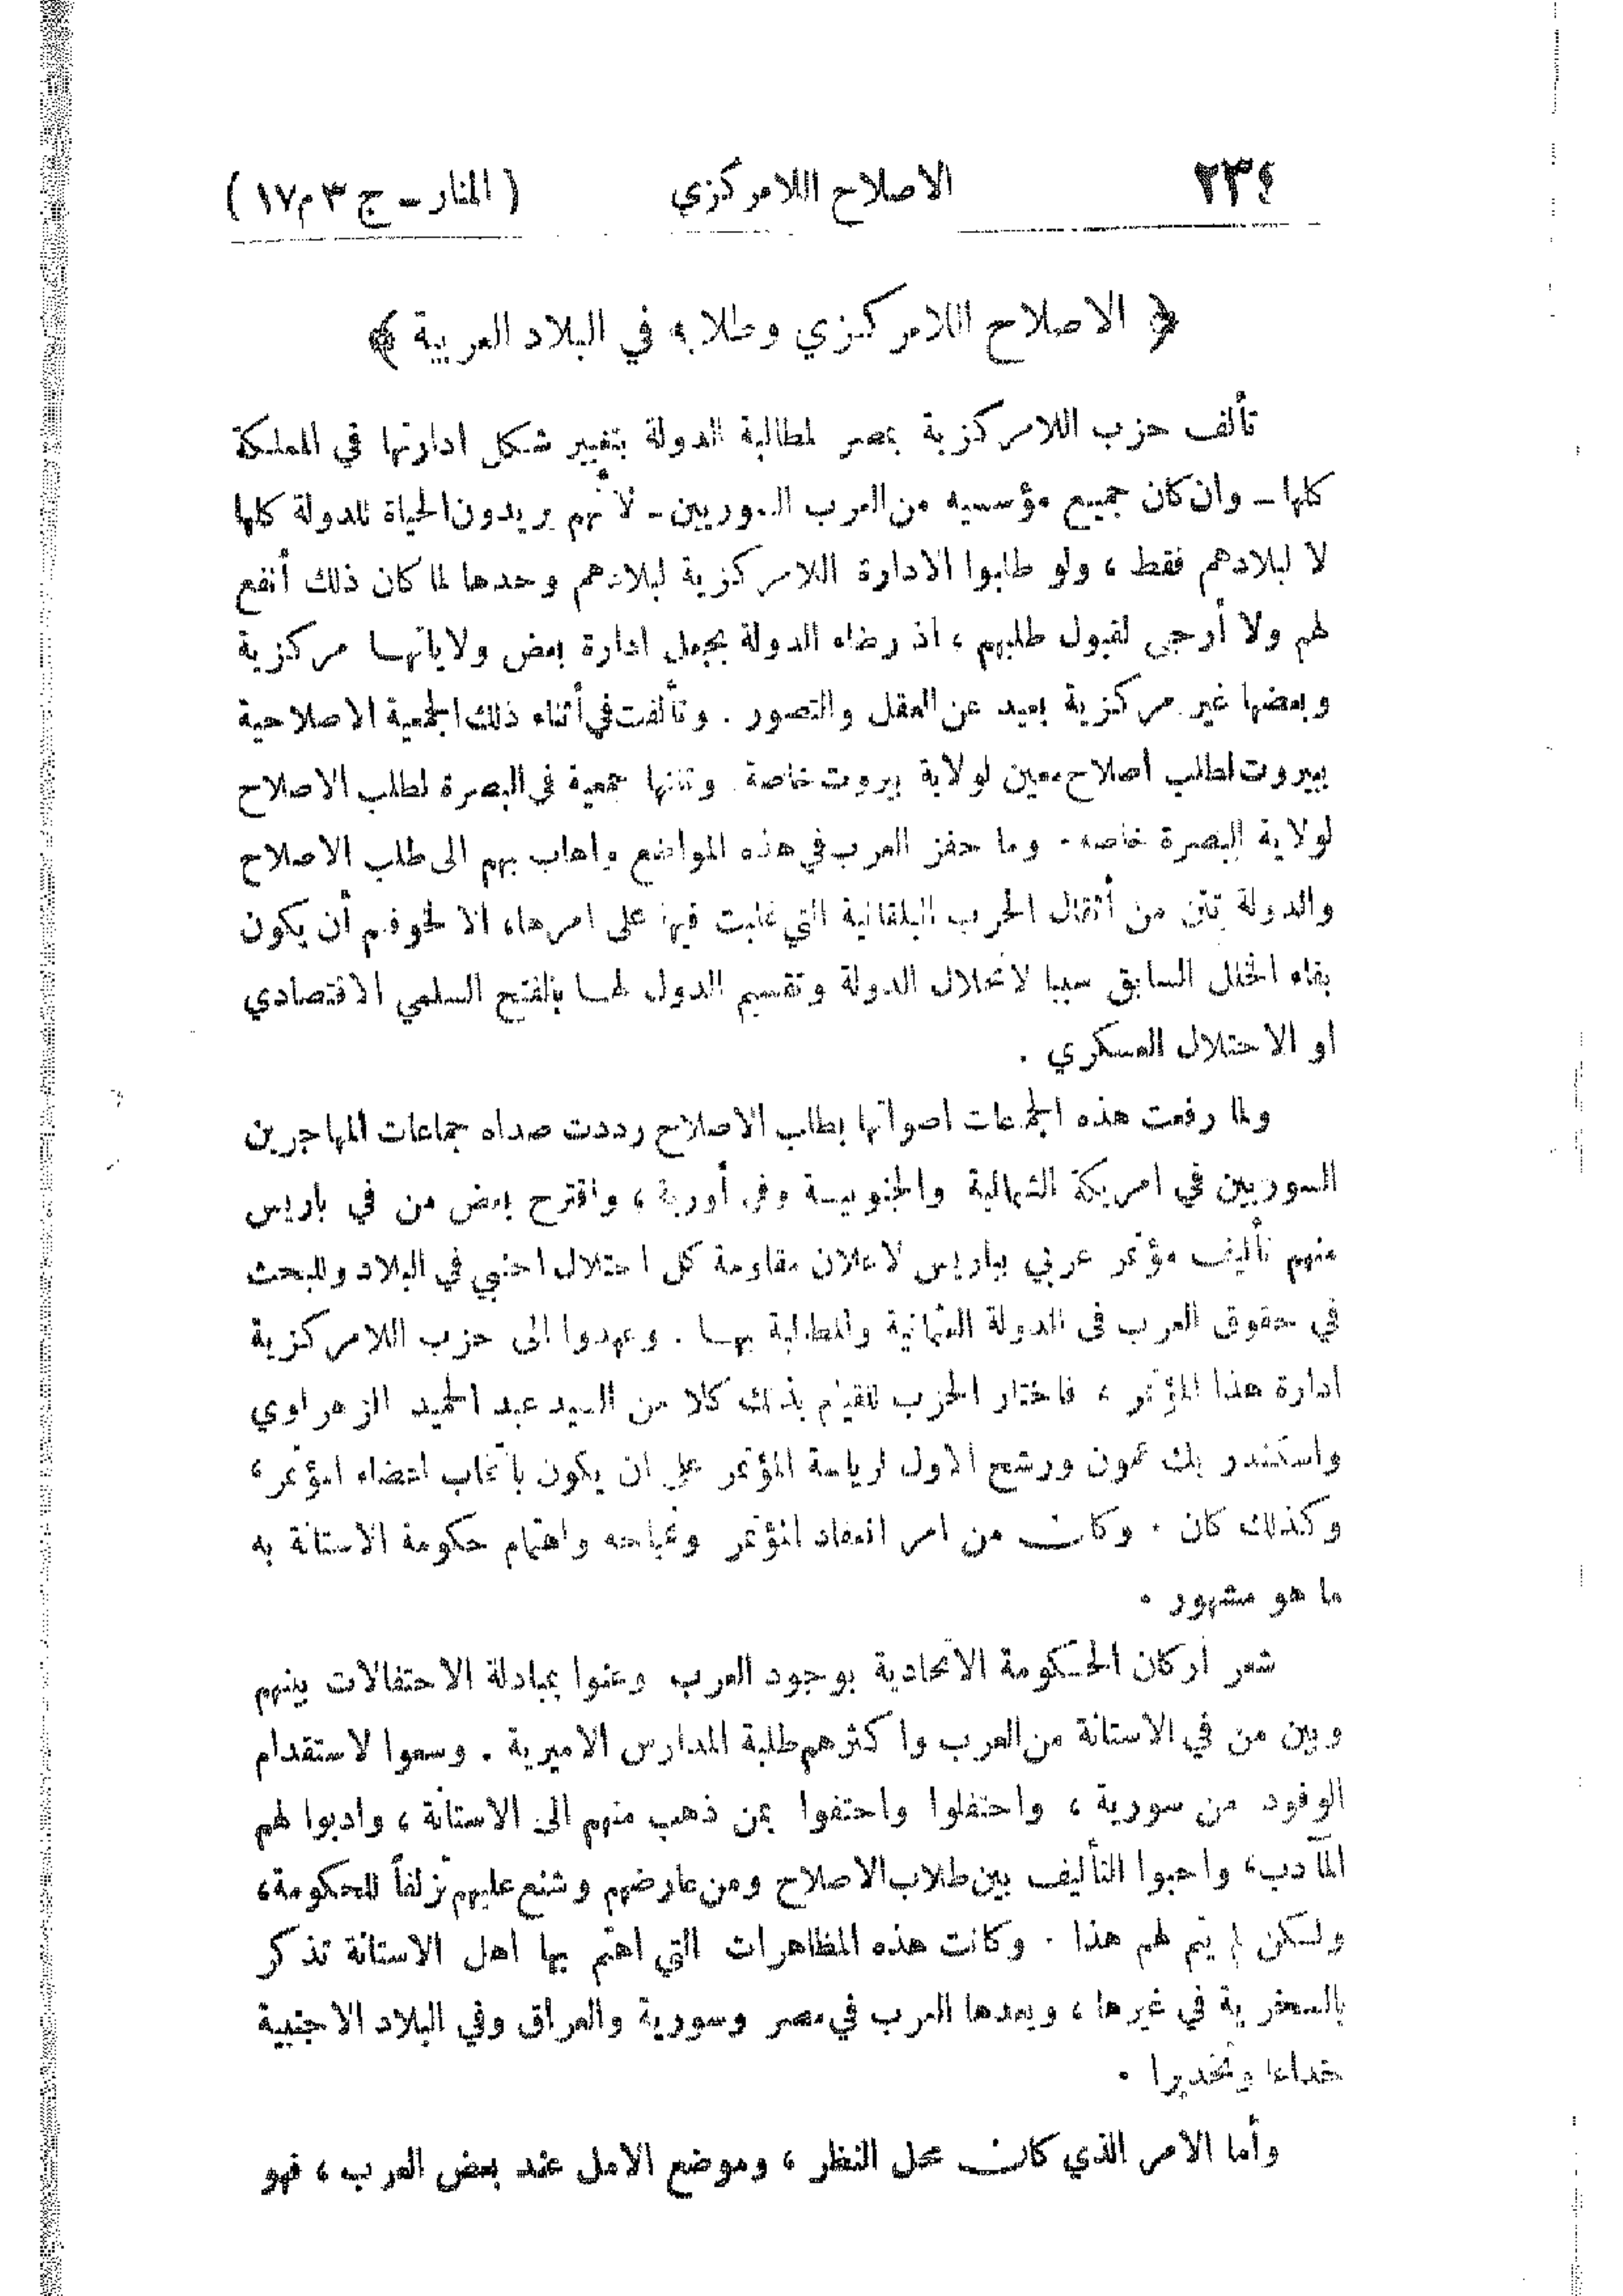 ٢٣٤ الاصلاح اللامركزي ( المنار ـ ج ٣ م ١٧ )
﴿ الاصلاح اللامركزي وطلابه في البلاد العربية ﴾
تألف حزب اللامركزية بمصر لمطالبة الدولة بتغيير شكل ادارتها في المملكة
كلها ـ وان كان جميع مؤسسيه من العرب السوريين ـ لأنهم يريدون الحياة للدولة كلها
لا لبلادهم فقط ، ولو طلبوا الادارة اللامركزية لبلادهم وحدها لما كان ذلك أنفع
لهم ولا أرجى لقبول طلبهم ، اذ رضاء الدولة بجعل ادارة بعض ولاياتها مركزية
وبعضها غير مركزية بعيد عن العقل والتصور . وتألفت في أثناء ذلك الجمعية الاصلاحية
ببيروت لطلب اصلاح معين لولاية بيروت خاصة وتلتها جمعية في البصرة لطلب الاصلاح
لولاية البصرة خاصه . وما حفز العرب في هذه المواضع واهاب بهم الى طلب الاصلاح
والدولة تئن من أثقال الحرب البلقانية التي غلبت فيها على امرها، الا لخوفهم أن يكون
بقاء الخلل السابق سببا لانحلال الدولة وتقسيم الدول لها بالفتح السلمي الاقتصادي
او الاحتلال العسكري .
ولما رفعت هذه الجماعات اصواتها بطلب الاصلاح رددت صداه جماعات المهاجرين
السوريين في امريكة الشمالية والجنوبية وفي أوربة ، واقترح بعض من في باريس
منهم تأليف مؤتمر عربي بباريس لاعلان مقاومة كل احتلال اجنبي في البلاد وللبحث
في حقوق العرب في الدولة العثمانية والمطالبة بها . وعهدوا الى حزب اللامركزية
ادارة هذا المؤتمر ، فاختار الحزب للقيام بذلك كلا من السيد عبد الحميد الزهراوي
واسكندر بك عمون ورشح الاول لرياسة المؤتمر على ان يكون بانتخاب اعضاء المؤتمر ،
وكذلك كان . وكان من امر انعقاد المؤتمر ونجاحه واهتمام حكومة الاستانة به
ما هو مشهور .
شعر اركان الحكومة الاتحادية بوجود العرب وعنوا بمبادلة الاحتفالات بينهم
وبين من في الاستانة من العرب واكثرهم طلبة المدارس الاميرية . وسعوا لاستقدام
الوفود من سورية ، واحتفلوا واحتفوا بمن ذهب منهم الى الاستانة ، وادبوا لهم
المآدب، واحبوا التأليف بين طلاب الاصلاح ومن عارضهم وشنع عليهم تزلفاً للحكومة،
ولكن لم يتم لهم هذا . وكانت هذه المظاهرات التي اهتم بها اهل الاستانة تذكر
بالسخرية في غيرها ، ويعدها العرب في مصر وسورية والعراق وفي البلاد الاجنبية
خداعا وتخديرا .
وأما الامر الذي كان محل النظر ، وموضع الامل عند بعض العرب ، فهو